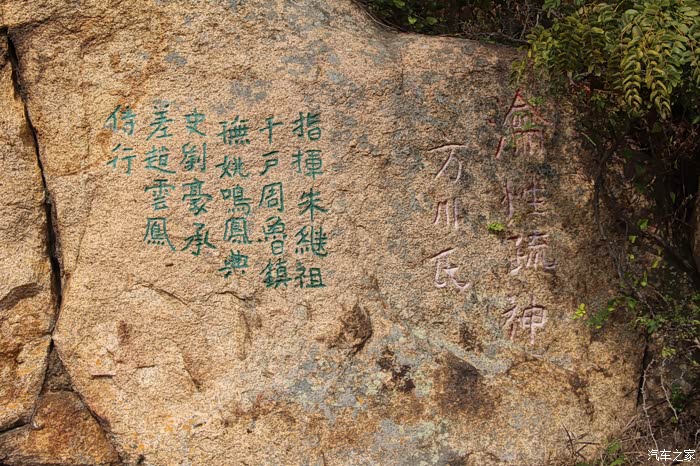 瀹性疏神
万川氏
指揮朱繼祖
千戸周魯鎮
撫姚鳴鳳典
史劉豪承
差趙雲鳳
侍行
汽车之家